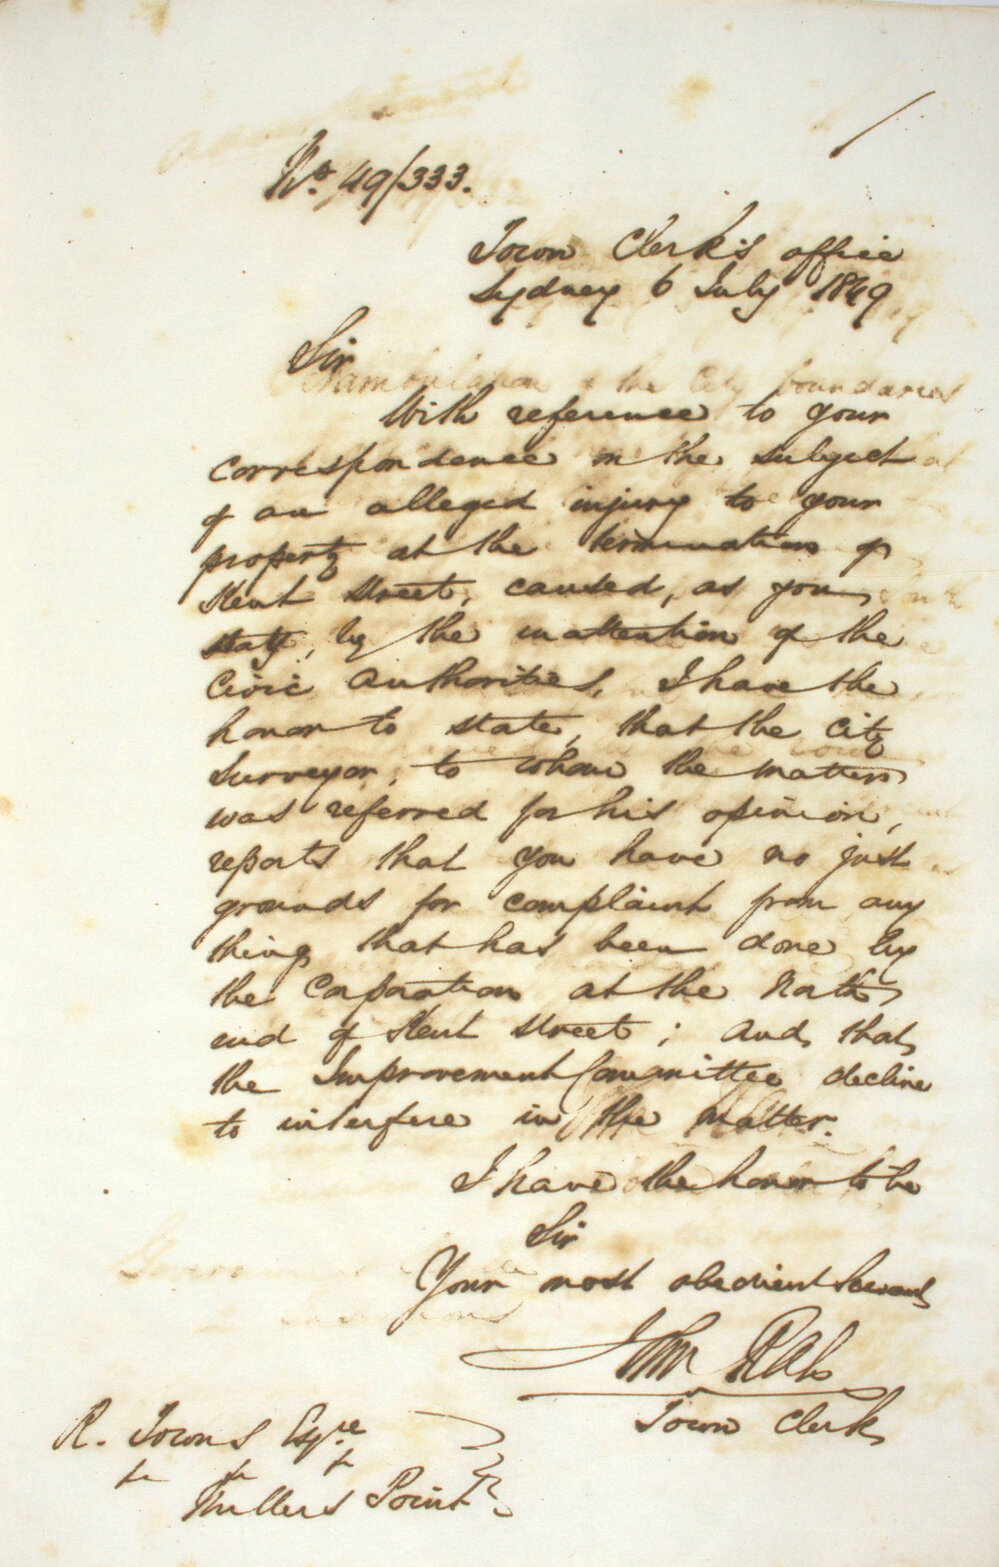 No. 49/333.
Town Clerk's office
Sydney 6 July 1849
Sir
With reference to your
correspondence on the subject
of an alleged injury to your
property at the termination of
Kent Street, caused, as you
state, by the inattention of the
Civic Authorities, I have the
honor to state, that the City
Surveyor, to whom the matter
was referred for his opinion,
reports that you have no just
grounds for complaint from any
thing that has been done by
the Corporation at the North
end of Kent Street; and that
the Improvement Committee decline
to interfere in the matter.
I have the honor to be
Sir
Your most obedient Servant
John Rae
Town Clerk
R. Towns Esqre
Millers Point